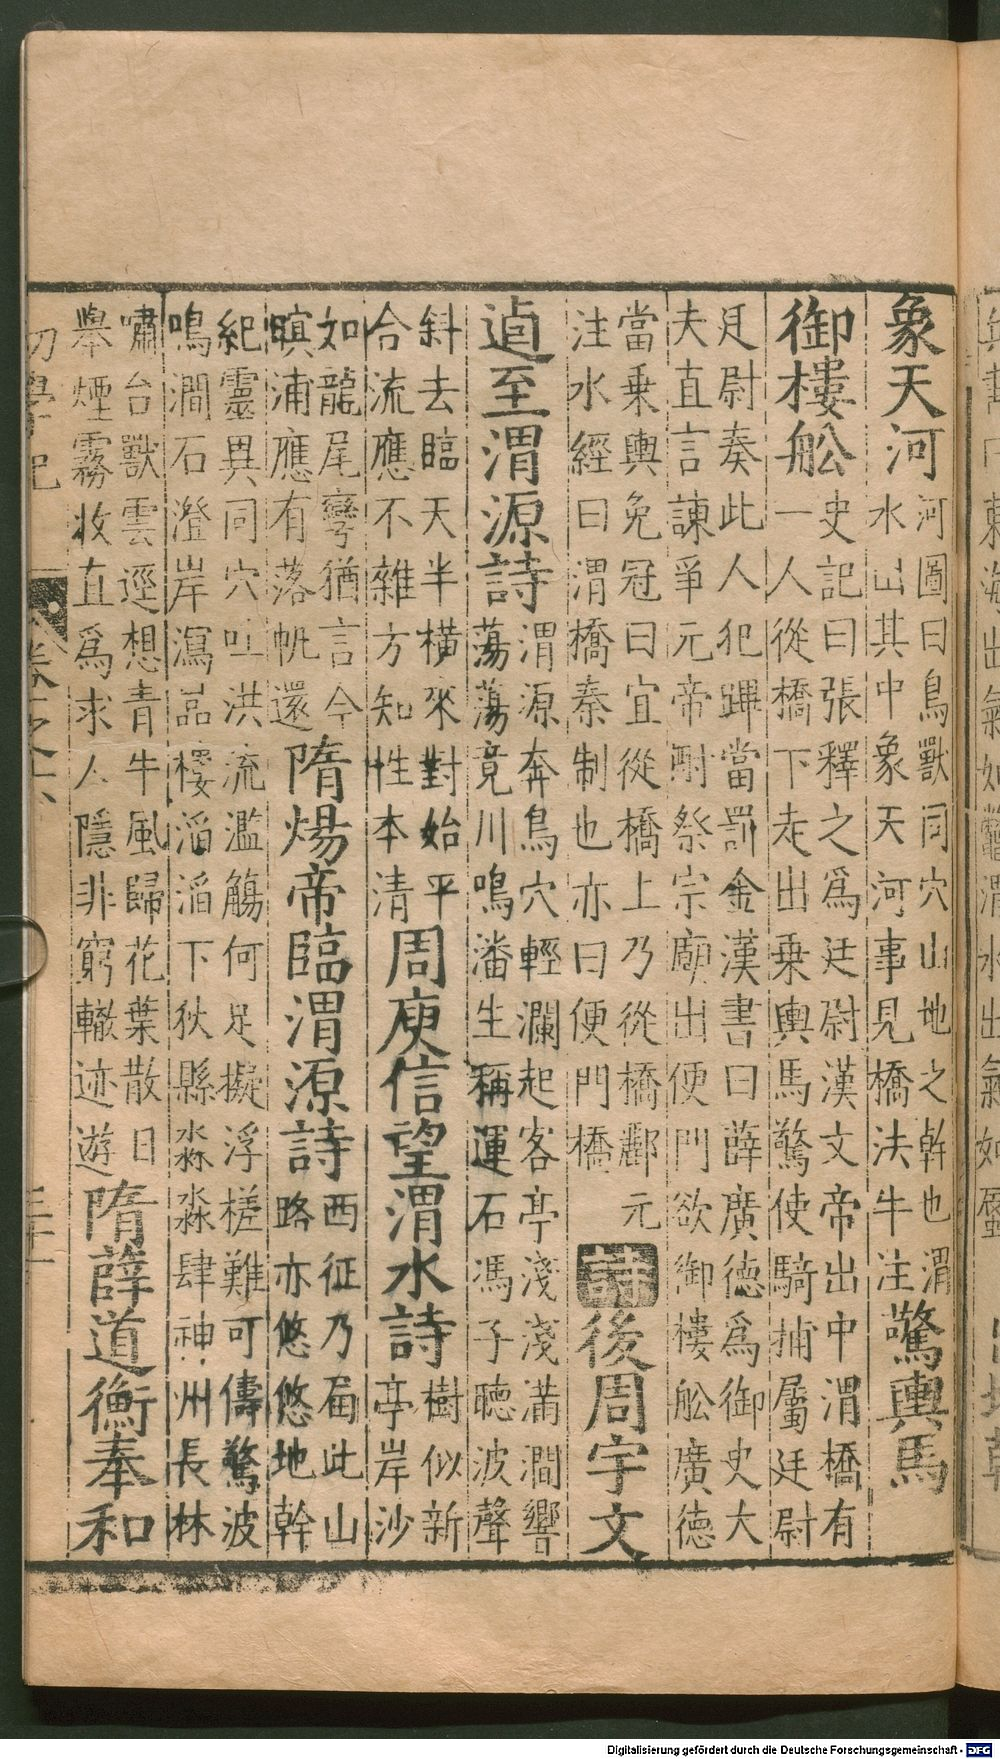 象天河
河圖曰鳥獸同穴山地之幹也渭
水山其中象天河事見橋法牛注
驚輿馬
御樓舩
史記曰張釋之爲廷尉漢文帝出中渭橋有
一人從橋下走出乗輿馬驚使騎捕屬廷尉
足尉奏此人犯蹕當罰金漢書曰薛廣徳爲御史大
夫直言諫爭元帝酎祭宗廟出便門欲御樓舩廣徳
當乗輿免冠曰宜從橋上乃從橋酈元
注水經曰渭橋秦制也亦曰便門橋
詩
後周宇文
逌至渭源詩
渭源奔鳥穴輕瀾起客亭淺淺滿澗響
蕩蕩竟川鳴潘生稱運石馮子聴波聲
斜去臨天半橫來對始平
合流應不雜方知性本清
周庾信望渭水詩
樹似新
亭岸沙
如龍尾彎猶言今
暝浦應有落帆還
隋煬帝臨渭源詩
西征乃屆此山
路亦悠悠地幹
紀靈異同穴吐洪流濫觴何足擬浮槎難可儔驚波
鳴澗石澄岸瀉嵓樓滔滔下狄縣淼淼肆神州長林
嘯台獸雲逕想青牛風歸花葉散日
舉煙霧收直爲求人隱非窮轍迹遊
隋薛道衡奉和
初學記
卷之六
Digitalisierung gefördert durch die Deutsche Forschungsgemeinschaft - DFG